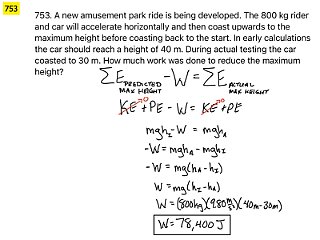 753
753. A new amusement park ride is being developed. The 800 kg rider
and car will accelerate horizontally and then coast upwards to the
maximum height before coasting back to the start. In early calculations
the car should reach a height of 40 m. During actual testing the car
coasted to 30 m. How much work was done to reduce the maximum
height?
ΣE PREDICTED MAX HEIGHT - W = ΣE ACTUAL MAX HEIGHT
KE→0 + PE - W = KE→0 + PE
mgh_I - W = mgh_A
-W = mgh_A - mgh_I
-W = mg(h_A - h_I)
W = mg(h_I - h_A)
W = (800kg)(9.80 m/s²)(40m - 30m)
W = 78,400 J